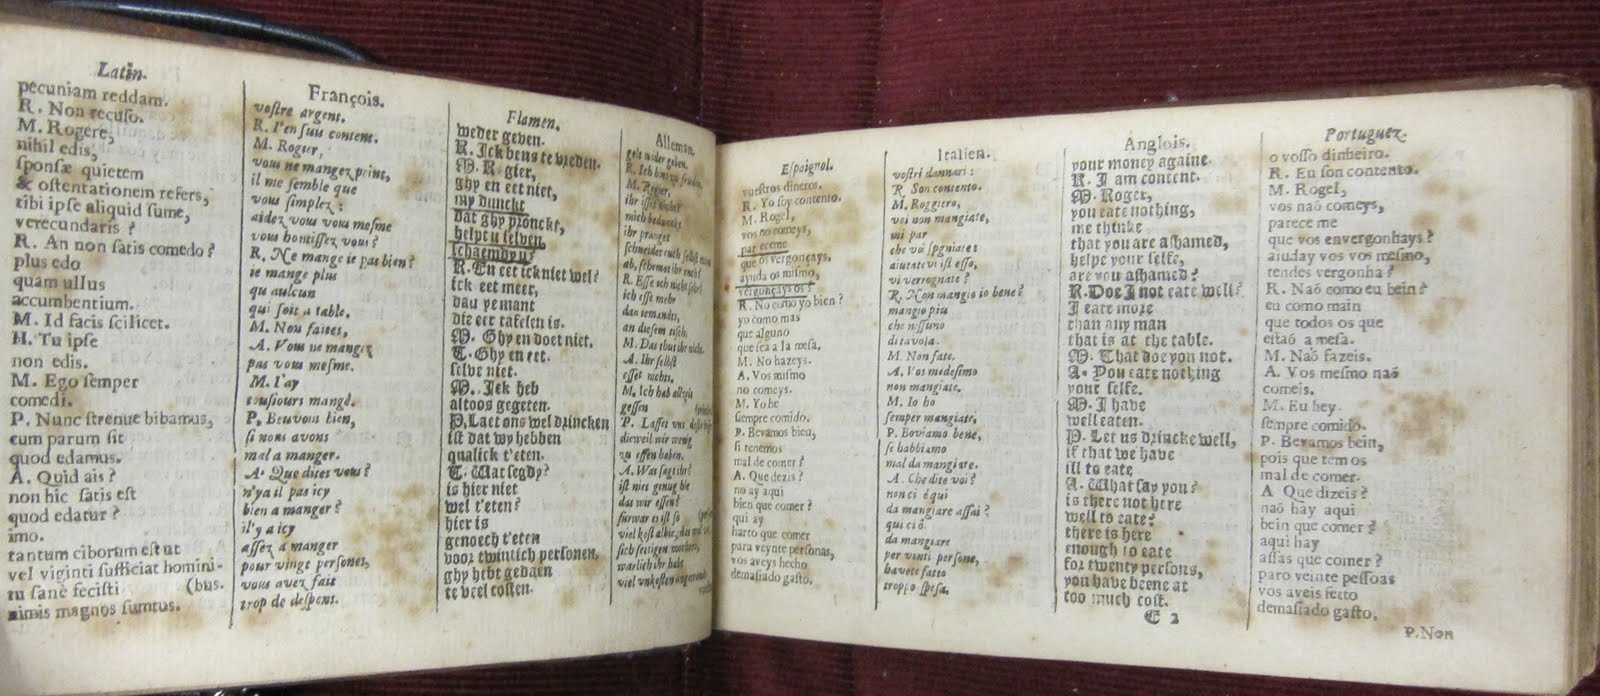 Latin.
pecuniam reddam.
R. Non recuso.
M. Rogere,
nihil edis,
sponsæ quietem
& ostentationem refers,
tibi ipse aliquid sume,
verecundaris ?
R. An non satis comedo ?
plus edo
quam ullus
accumbentium.
M. Id facis scilicet.
H. Tu ipse
non edis.
M. Ego semper
comedi.
P. Nunc strenue bibamus,
cum parum sit
quod edamus.
A. Quid ais ?
non hic satis est
quod edatur ?
imo.
tantum ciborum est ut
vel viginti sufficiat homini-
tu sanè fecisti (bus.
nimis magnos sumtus.
François.
vostre argent.
R. I'en suis content.
M. Rogier,
vous ne mangez point,
il me semble que
vous simplez :
aidez vous vous mesme
vous hontissez vous ?
R. Ne mange ie pas bien ?
ie mange plus
qu aulcun
qui soit a table.
M. Non faites,
A. Vous ne mangez
pas vous mesme.
M. I'ay
tousiours mangé.
P. Beuvons bien,
si nous avons
mal a manger.
A. Que dites vous ?
n'ya il pas icy
bien a manger ?
il'y a icy
assez a manger
pour vingt persones,
vous avez fait
trop de despens.
Flamen.
weder geven.
R. Ick bens te vreden.
M. Rogier,
ghy en eet niet,
my dunckt
dat ghy pronckt,
helpt u selven,
schaemdy u?
R. En eet ick niet wel?
ick eet meer,
dau yemant
die eet tafelen is.
M. Ghy en doet niet.
T. Ghy en eet.
selve niet.
M. Ick heb
altoos gegeten.
P. Laet ons wel drincken
ist dat wy hebben
qualick t'eten.
T. Wat segdy?
is hier niet
wel t'eten?
hier is
genoech t'eten
voor twintich personen,
ghy hebt gedaen
te veel costen.
Alleman.
gelt wider geben.
R. Ich bins zu frieden.
M. Rogier,
ihr isset nicht
mich bedunckt
ihr pranget
schneidet euch selbst
ab, schemet ihr euch?
R. Esse ich nicht
ich esse mehr
dan iemandes,
an diesem tisch.
M. Das thut ihr nicht.
A. Ihr selbst
esset nichts,
M. Ich hab alleeit
gessen
P. Lasset vns
dieweil wir wenig
zu essen haben.
A. Was sagt ihr?
ist nicht genug hie
das wir essen?
furwar es ist so
viel kost alhie,
sich settigen mochten,
warlich ihr habt
viel unkosten
Espaignol.
vuestros dineros.
R. Yo soy contento.
M. Rogel,
vos no comeys,
par eceme
que os vergonçays,
ayuda os mismo,
vergonçays os ?
R. No como yo bien ?
yo como mas
que alguno
que sea a la mesa.
M. No hazeys.
A. Vos mismo
no comeys.
M. Yo he
siempre comido.
P. Bevamos bien,
si tenemos
mal de comer ?
A. Que dezis ?
no ay aqui
bien que comer ?
qui ay
harto que comer
para veynte personas,
vos aveys hecho
demasiado gasto.
Italien.
vostri dannari :
R. Son contento.
M. Roggiero,
voi non mangiate,
mi par
che voi spgniate :
aiutate vi ist esso,
vi verrognate ?
R. Non mangio io bene ?
mangio piu
che nissuno
di tavola.
M. Non fate.
A. Vos medesimo
non mangiate.
M. Io ho
semper mangiate,
P. Boviamo bene,
se habbiamo
mal da mangiare.
A. Che dite voi ?
non ci è qui
da mangiare assai ?
qui ci ò
da mangiare
per vinti persone,
havete fatto
troppo spesa.
Anglois.
your money againe.
R. I am content.
M. Roger,
you eate nothing,
me thinke
that you are ashamed,
helpe your selfe,
are you ashamed ?
R. Doe I not eate well?
I eate more
than any man
that is at the table.
M. That doe you not.
A. You eate nothing
your selfe.
M. I have
well eaten.
P. Let us drincke well,
if that we have
ill to eate
A. What say you?
is there not here
well to eate?
there is here
enough to eate
for twenty persons,
you have beene at
too much cost.
E 2
Portuguez.
o vosso dinheiro.
R. Eu son contento.
M. Rogel,
vos naõ comeys,
parece me
que vos envergonhays ?
aiuday vos vos mesmo,
tendes vergonha ?
R. Naõ como eu bein ?
eu como main
que todos os que
estaõ a mesa.
M. Naõ fazeis.
A. Vos mesmo naõ
comeis.
M. Eu hey
sempre comido.
P. Bevamos bein,
pois que tem os
mal de comer.
A Que dizeis ?
naõ hay aqui
bein que comer ?
aqui hay
assas que comer ?
paro veinte pessoas
vos aveis fecto
demasiado gasto,
P. Non